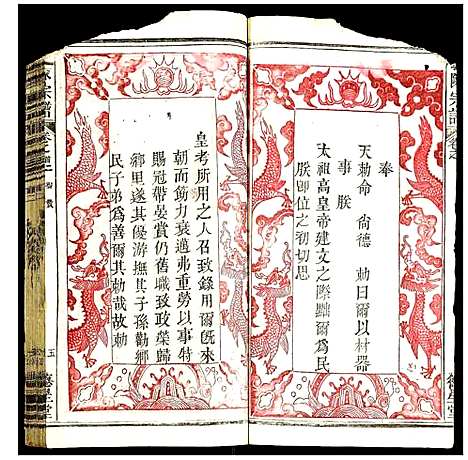 奉
天勅命 尙德 勅曰爾以材器
事 朕
太祖高皇帝建文之際黜爾爲民
朕卽位之初切思
皇考所用之人召致錄用爾旣來
朝而筋力衰邁弗重勞以事特
賜冠帶晏賞仍舊職致政榮歸
鄉里遂其優游撫其子孫勸鄉
民子弟爲善爾其勅哉故勅
宗譜
五
德星堂
宗譜
德星堂